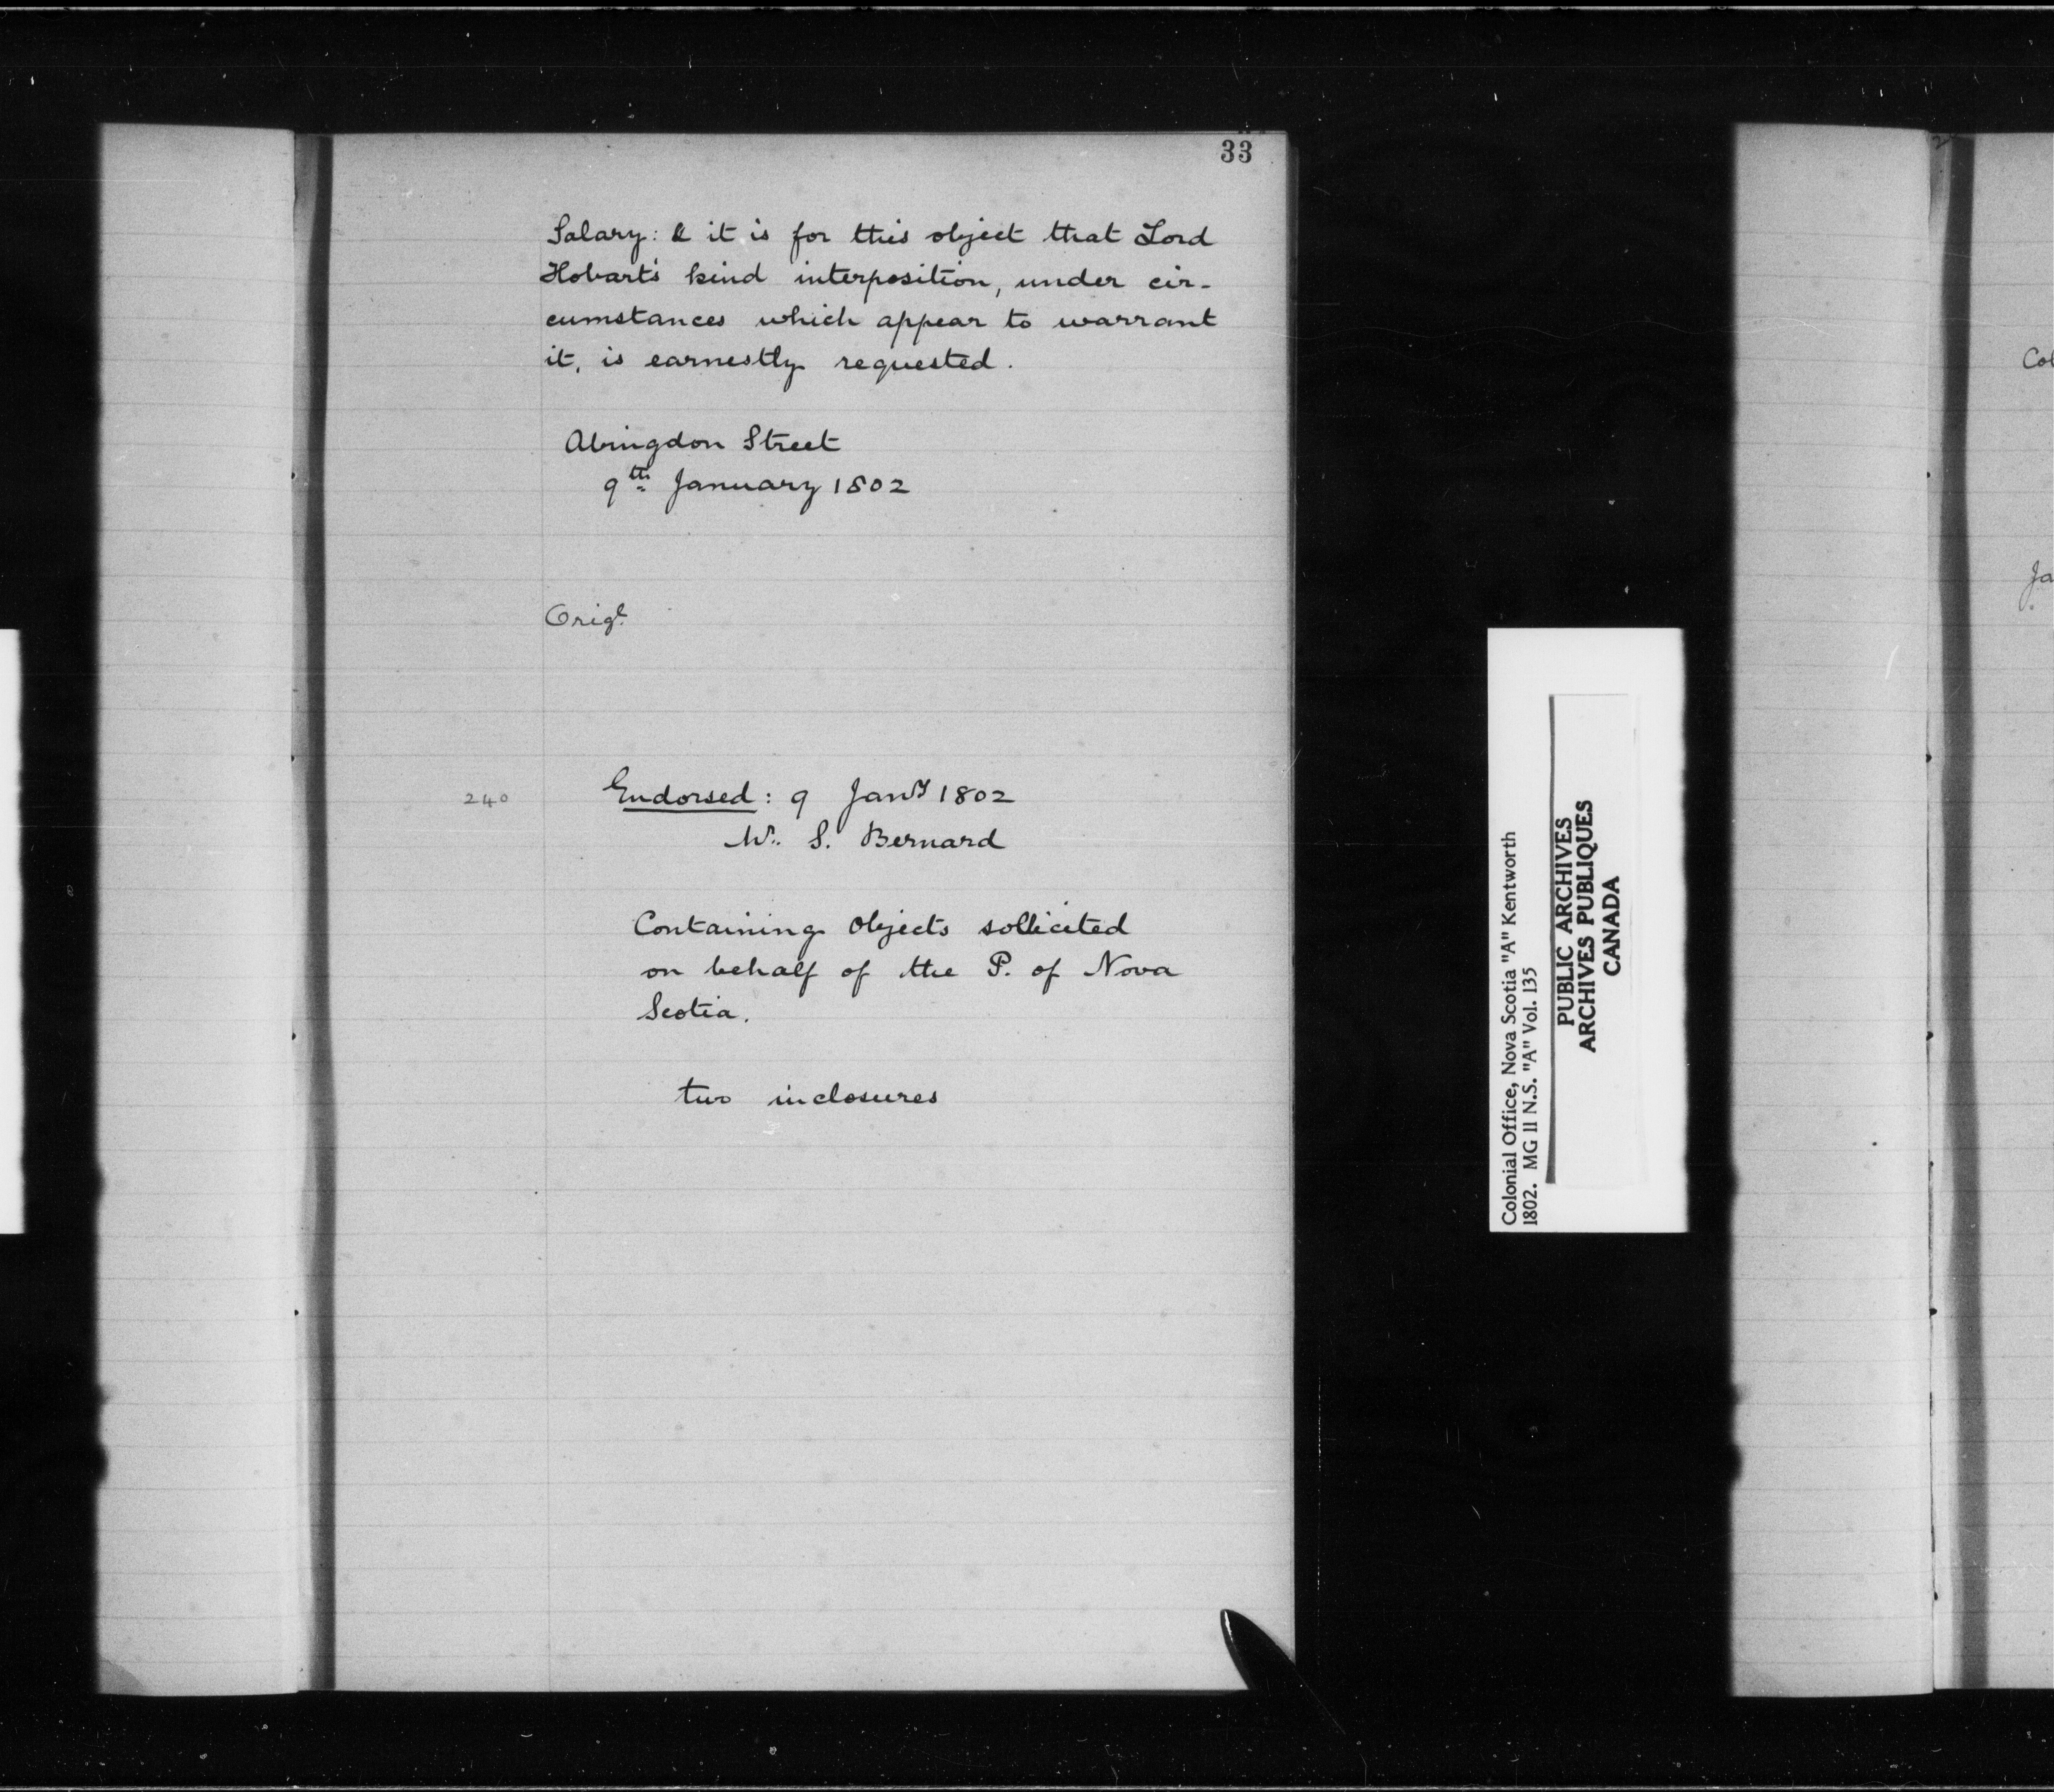 33
Salary: & it is for this object that Lord
Hobart's kind interposition, under cir-
cumstances which appear to warrant
it, is earnestly requested.
Abingdon Street
9th January 1802
Origl.
240
Endorsed: 9 Jany 1802
Mr. S. Bernard
Containing Objects sollicited
on behalf of the P. of Nova
Scotia.
two inclosures
Colonial Office, Nova Scotia "A" Kentworth
1802. MG 11 N.S. "A" Vol. 135
PUBLIC ARCHIVES
ARCHIVES PUBLIQUES
CANADA
2
Col
Ja